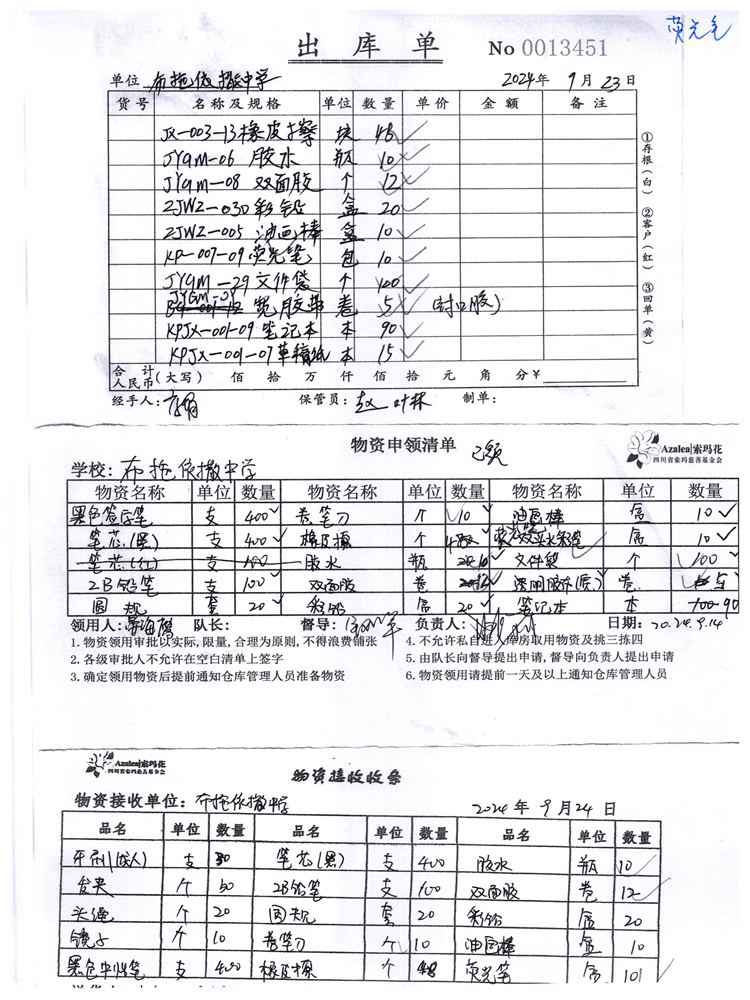 荧光笔
出库单 No 0013451
单位 布拖依撒中学 2024年 9月 23日
货号 名称及规格 单位 数量 单价 金额 备注
JX-003-13 橡皮擦 块 48
JYGM-06 胶水 瓶 10
JYGM-08 双面胶 个 12
ZJWZ-030 彩铅 盒 20
ZJWZ-005 油画棒 盒 10
KP-007-09 荧光笔 包 10
JYGM-29 文件袋 个 100
JYGM-01
宽胶带 卷 5 (封口胶)
KPJX-001-09 笔记本 本 90
KPJX-001-07 草稿纸 本 15
合计
人民币(大写) 佰 拾 万 仟 佰 拾 元 角 分 ¥
经手人: 保管员: 赵叶林 制单:
①存根(白) ②客户(红) ③回单(黄)
物资申领清单 已领
Azalea|索玛花
四川省索玛慈善基金会
学校: 布拖依撒中学
物资名称 单位 数量 物资名称 单位 数量 物资名称 单位 数量
黑色签字笔 支 400 卷笔刀 个 10 油画棒 盒 10
笔芯(黑) 支 400 橡皮擦 个 盒 10
笔芯(红) 支 100 胶水 瓶 10 文件袋 个 100
2B铅笔 支 100 双面胶 卷 透明胶 卷 5
圆规 套 20 彩铅 盒 20 笔记本 本 100 90
领用人: 队长: 督导: 负责人: 日期: 2024.9.14
1. 物资领用审批以实际, 限量, 合理为原则, 不得浪费铺张 4. 不允许私自进入库房取用物资及挑三拣四
2. 各级审批人不允许在空白清单上签字 5. 由队长向督导提出申请, 督导向负责人提出申请
3. 确定领用物资后提前通知仓库管理人员准备物资 6. 物资领用请提前一天及以上通知仓库管理人员
Azalea|索玛花
四川省索玛慈善基金会
物资接收收条
物资接收单位: 布拖依撒中学 2024年 9月 24日
品名 单位 数量 品名 单位 数量 品名 单位 数量
牙刷(成人) 支 30 笔芯(黑) 支 400 胶水 瓶 10
发夹 个 50 2B铅笔 支 100 双面胶 卷 12
头绳 个 20 圆规 套 20 彩铅 盒 20
镜子 个 10 卷笔刀 个 10 油画棒 盒 10
黑色中性笔 支 400 橡皮擦 个 48 荧光笔 盒 10